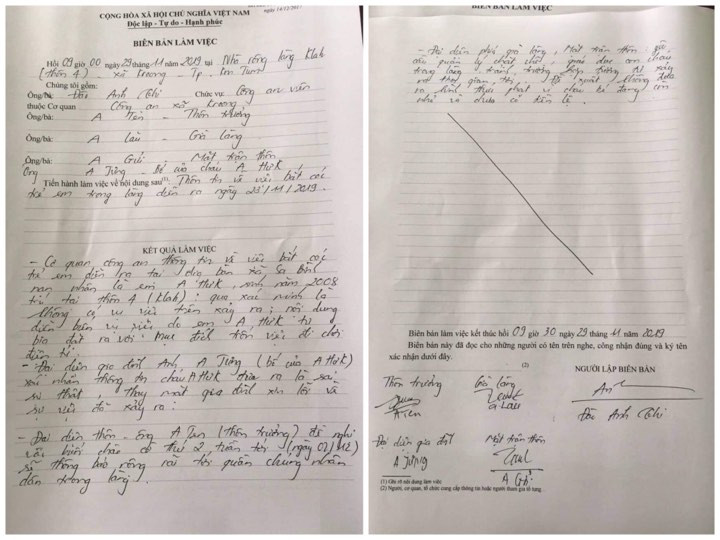 CỘNG HÒA XÃ HỘI CHỦ NGHĨA VIỆT NAM
Độc lập - Tự do - Hạnh phúc
BIÊN BẢN LÀM VIỆC
Hồi 09 giờ 00 ngày 29 tháng 11 năm 2019 tại Nhà rông làng Klah
(thôn 4) - xã Kroong - Tp. Kon Tum
Chúng tôi gồm:
Ông/bà: Đào Anh Chức vụ: Công an viên
thuộc Cơ quan Công an xã Kroong
Ông/bà: A - Thôn trưởng
Ông/bà: A Lău - Già làng
Ông/bà: A - Mặt trận thôn
Ông A Jưng - Bố của cháu A
Tiến hành làm việc về nội dung sau(1) Thông tin về việc bắt cóc
trẻ em trong làng diễn ra ngày /11/2019.
KẾT QUẢ LÀM VIỆC
- Cơ quan công an thông tin về việc bắt cóc
trẻ em diễn ra tại địa bàn xã Sa Bình
nạn nhân là em A sinh năm 2008
trú tại thôn 4 (Klah): qua xác minh là
không có vụ việc trên xảy ra; nội dung
diễn biến vụ việc do em A tự
bịa đặt ra với mục đích trốn việc đi chơi
điện tử.
- Đại diện gia đình Anh A Jưng (bố của A)
xác nhận thông tin cháu A đưa ra là sai
sự thật, thay mặt gia đình xin lỗi về
sự việc đã xảy ra.
- Đại diện thôn - ông A (thôn trưởng) đề nghị
chào cờ thứ 2 tuần tới (ngày 02/12)
sẽ thông báo rộng rãi tới quần chúng nhân
dân trong làng.
BIÊN BẢN LÀM VIỆC
- Đại diện già làng, Mặt trận thôn: yêu
cầu quản lý chặt chẽ, giáo dục con cháu
trong làng
ra hình thức phạt vì cháu A đang còn
nhỏ và chưa có tiền lệ.
Biên bản làm việc kết thúc hồi 09 giờ 30 ngày 29 tháng 11 năm 2019
Biên bản này đã đọc cho những người có tên trên nghe, công nhận đúng và ký tên
xác nhận dưới đây.
(2)
Thôn trưởng Già làng NGƯỜI LẬP BIÊN BẢN
A Lău
Đào Anh
Đại diện gia đình Mặt trận thôn
A JƯNG
(1) Ghi rõ nội dung làm việc
(2) Người, cơ quan, tổ chức cung cấp thông tin hoặc người tham gia tố tụng